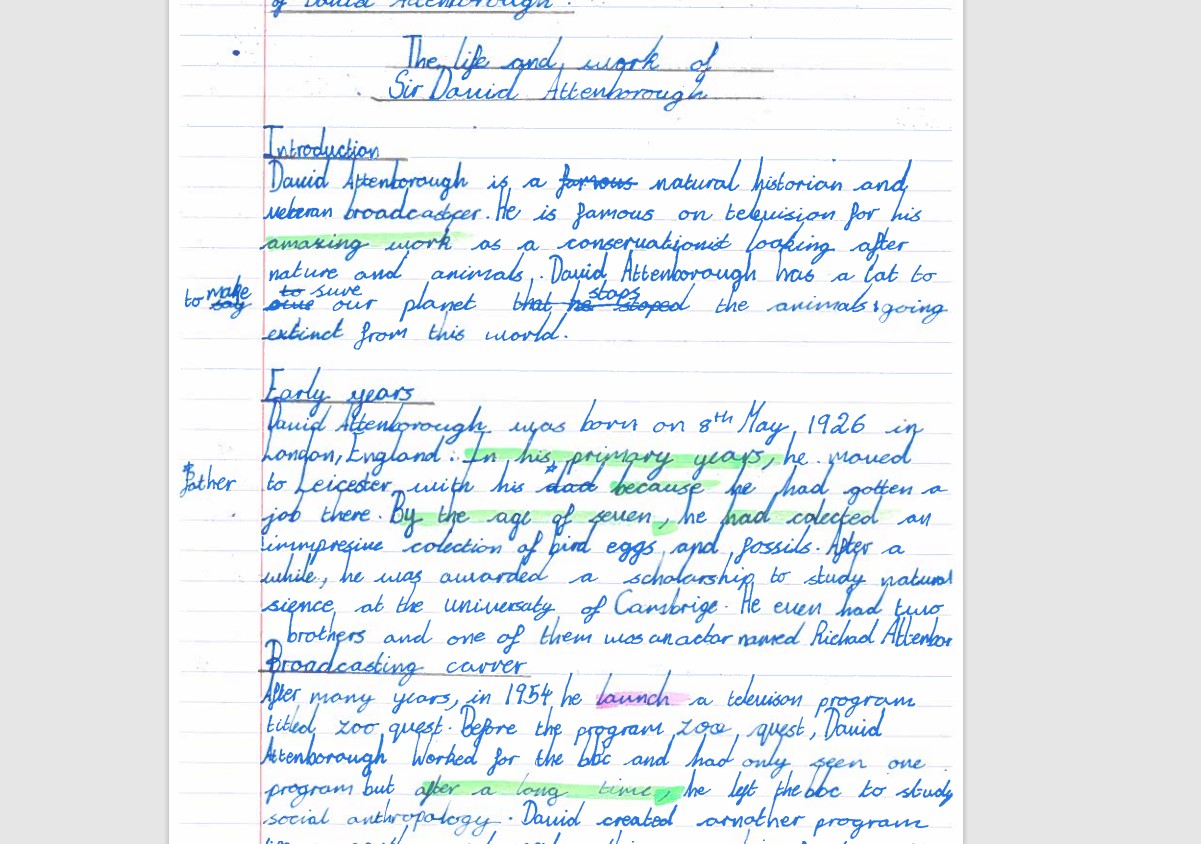 of David Attenborough.
The life and work of
Sir David Attenborough
Introduction
David Attenborough is a famous natural historian and
veteran broadcaster. He is famous on television for his
amazing work as a conservationist looking after
nature and animals. David Attenborough has a lat to
to make say to sure our planet that he stoped stops the animals going
extinct from this world.
Early years
David Attenborough was born on 8th May, 1926 in
London, England. In his primary years, he moved
to Leicester with his *dad *father because he had gotten a
job there. By the age of seven, he had colected an
immpresive colection of bird eggs and fossils. After a
while, he was awarded a scholarship to study natural
sience at the universaty of Cambrige. He even had two
brothers and one of them was an actor named Richad Attenbor
Broadcasting carrer
After many years, in 1954 he launch a televison program
titled zoo quest. Before the program zoo quest, David
Attenborough worked for the bbc and had only seen one
program but after a long time, he left the bbc to study
social anthropology. David created arnother program